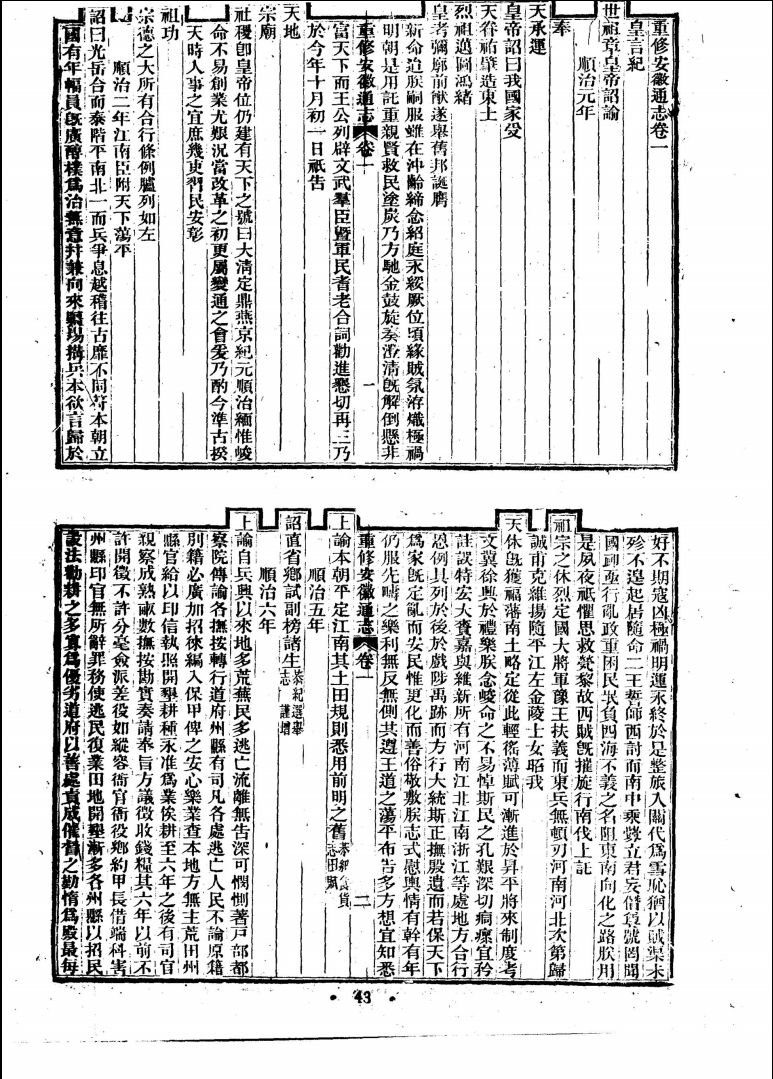 重修安徽通志卷一
皇言紀
世祖章皇帝詔諭
順治元年
奉
天承運
皇帝詔曰我國家受
天眷祐肇造東土
烈祖邁圖鴻緒
皇考彌廓前猷遂舉舊邦誕膺
新命迨朕嗣服雖在沖齡締念紹庭永綏厥位頃緣賊氛洊熾極禍
明朝是用託重親賢救民塗炭乃方馳金鼓旋奏澄清旣解倒懸非
重修安徽通志 卷一 一
富天下而王公列辟文武羣臣曁軍民耆老合詞勸進懇切再三乃
於今年十月初一日祇告
天地
宗廟
社稷卽皇帝位仍建有天下之號曰大淸定鼎燕京紀元順治緬惟峻
命不易創業尤艱況當改革之初更屬變通之會爰乃酌今準古揆
天時人事之宜庶幾吏習民安彰
祖功
宗德之大所有合行條例臚列如左
順治二年江南臣附天下蕩平
詔曰光岳合而泰階平南北一而兵爭息越稽往古靡不同符本朝立
國有年幅員旣廣醇樸爲治無意并兼向來疆埸搆兵本欲言歸於
好不期寇凶極禍明運永終於是整旅入關代爲雪恥猶以賊渠未
殄不遑起居隨命二王誓師西討而南中乘釁立君妄僭尊號罔聞
國恤亟行亂政重困民氓負四海不義之名阻東南向化之路朕用
是夙夜祇懼思救煢黎故西賊旣摧旋行南伐上託
祖宗之休烈定國大將軍豫王扶義而東兵無頓刃河南河北次第歸
誠甫克維揚隨平江左金陵士女昭我
天休旣獲福藩南土略定從此輕徭薄賦可漸進於昇平將來制度考
文冀徐興於禮樂朕念峻命之不易悼斯民之孔艱深切痌瘝宜矜
詿誤特宏大賚嘉與維新所有河南江北江南浙江等處地方合行
恩例具列於後於戲陟禹跡而方行大統斯正撫殷遺而若保天下
爲家旣定亂而安民惟更化而善俗敬敷朕志式慰輿情有幹有年
仍服先疇之樂利無反無側其遵王道之蕩平布告多方想宜知悉
重修安徽通志 卷一 二
上諭本朝平定江南其土田規則悉用前明之舊
順治五年
詔直省鄉試副榜諸生恭紀選舉志 謹增
順治六年
上諭自兵興以來地多荒蕪民多逃亡流離無告深可憫惻著戸部都
察院傳諭各撫按轉行道府州縣有司凡各處逃亡人民不論原籍
別籍必廣加招徠編入保甲俾之安心樂業查本地方無主荒田州
縣官給以印信執照開墾耕種永准爲業俟耕至六年之後有司官
親察成熟畝數撫按勘實奏請奉旨方議徵收錢糧其六年以前不
許開徵不許分毫僉派差役如縱容衙官衙役鄉約甲長借端科害
州縣印官無所辭罪務使逃民復業田地開墾漸多各州縣以招民
設法勸耕之多寡爲優劣道府以善處責成催督之勤惰爲殿最每
43